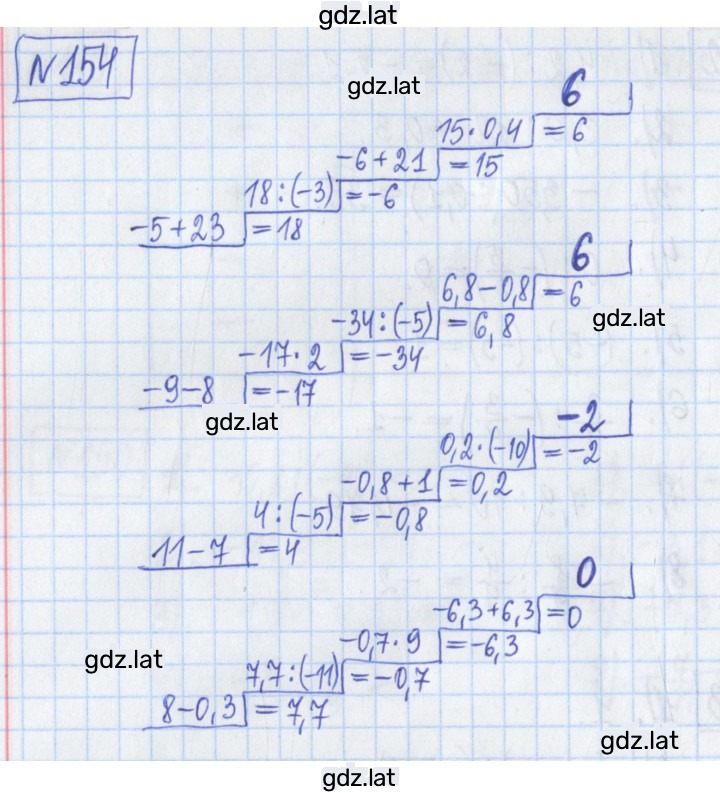 gdz.lat
N 154
gdz.lat
6
15·0,4 = 6
-6+21 = 15
18:(-3) = -6
-5+23 = 18
6
6,8-0,8 = 6
gdz.lat
-34:(-5) = 6,8
-17·2 = -34
-9-8 = -17
gdz.lat
-2
0,2·(-10) = -2
-0,8+1 = 0,2
4:(-5) = -0,8
11-7 = 4
0
-6,3+6,3 = 0
-0,7·9 = -6,3
gdz.lat
7,7:(-11) = -0,7
8-0,3 = 7,7
gdz.lat
gdz.lat